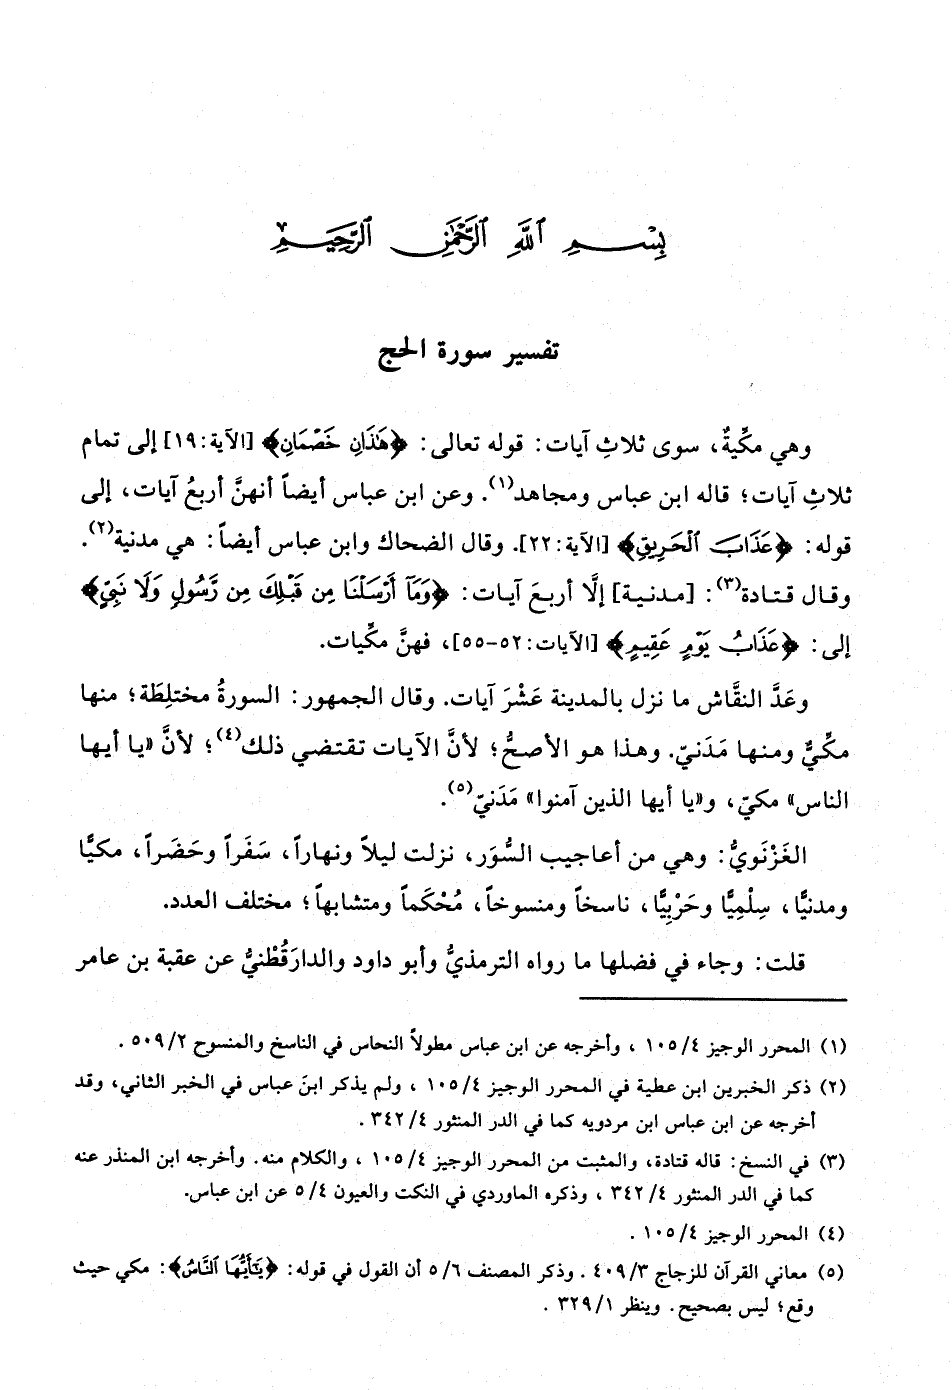 بِسْمِ ٱللَّهِ ٱلرَّحْمَٰنِ ٱلرَّحِيمِ
تفسير سورة الحج
وهي مكِّيةٌ، سوى ثلاثِ آيات: قوله تعالى: ﴿هَٰذَانِ خَصْمَانِ﴾ [الآية: ١٩] إلى تمام
ثلاثِ آيات؛ قاله ابن عباس ومجاهد(١). وعن ابن عباس أيضاً أنهنَّ أربعُ آيات، إلى
قوله: ﴿عَذَابَ ٱلْحَرِيقِ﴾ [الآية: ٢٢]. وقال الضحاك وابن عباس أيضاً: هي مدنية(٢).
وقال قتادة(٣): [مدنية] إلَّا أربعَ آيات: ﴿وَمَآ أَرْسَلْنَا مِن قَبْلِكَ مِن رَّسُولٍ وَلَا نَبِيٍّ﴾
إلى: ﴿عَذَابُ يَوْمٍ عَقِيمٍ﴾ [الآيات: ٥٢-٥٥]، فهنَّ مكِّيات.
وعَدَّ النقَّاش ما نزل بالمدينة عَشْرَ آيات. وقال الجمهور: السورةُ مختلِطَة؛ منها
مكِّيٌّ ومنها مَدَنيّ. وهذا هو الأصحُّ؛ لأنَّ الآيات تقتضي ذلك(٤)؛ لأنَّ «يا أيها
الناس» مكيّ، و«يا أيها الذين آمنوا» مَدَنيّ(٥).
الغَزْنَويُّ: وهي من أعاجيب السُّوَر، نزلت ليلاً ونهاراً، سَفَراً وحَضَراً، مكيًّا
ومدنيًّا، سِلْمِيًّا وحَرْبِيًّا، ناسخاً ومنسوخاً، مُحْكَماً ومتشابهاً؛ مختلف العدد.
قلت: وجاء في فضلها ما رواه الترمذيُّ وأبو داود والدارَقُطْنيُّ عن عقبة بن عامر
(١) المحرر الوجيز ٤/ ١٠٥ ، وأخرجه عن ابن عباس مطولاً النحاس في الناسخ والمنسوح ٢/ ٥٠٩ .
(٢) ذكر الخبرين ابن عطية في المحرر الوجيز ٤/ ١٠٥ ، ولم يذكر ابنَ عباس في الخبر الثاني، وقد
أخرجه عن ابن عباس ابن مردويه كما في الدر المنثور ٤/ ٣٤٢ .
(٣) في النسخ: قاله قتادة، والمثبت من المحرر الوجيز ٤/ ١٠٥ ، والكلام منه. وأخرجه ابن المنذر عنه
كما في الدر المنثور ٤/ ٣٤٢ ، وذكره الماوردي في النكت والعيون ٤/ ٥ عن ابن عباس.
(٤) المحرر الوجيز ٤/ ١٠٥ .
(٥) معاني القرآن للزجاج ٣/ ٤٠٩ . وذكر المصنف ٦/ ٥ أن القول في قوله: ﴿يَٰٓأَيُّهَا ٱلنَّاسُ﴾: مكي حيث
وقع؛ ليس بصحيح. وينظر ١/ ٣٢٩ .